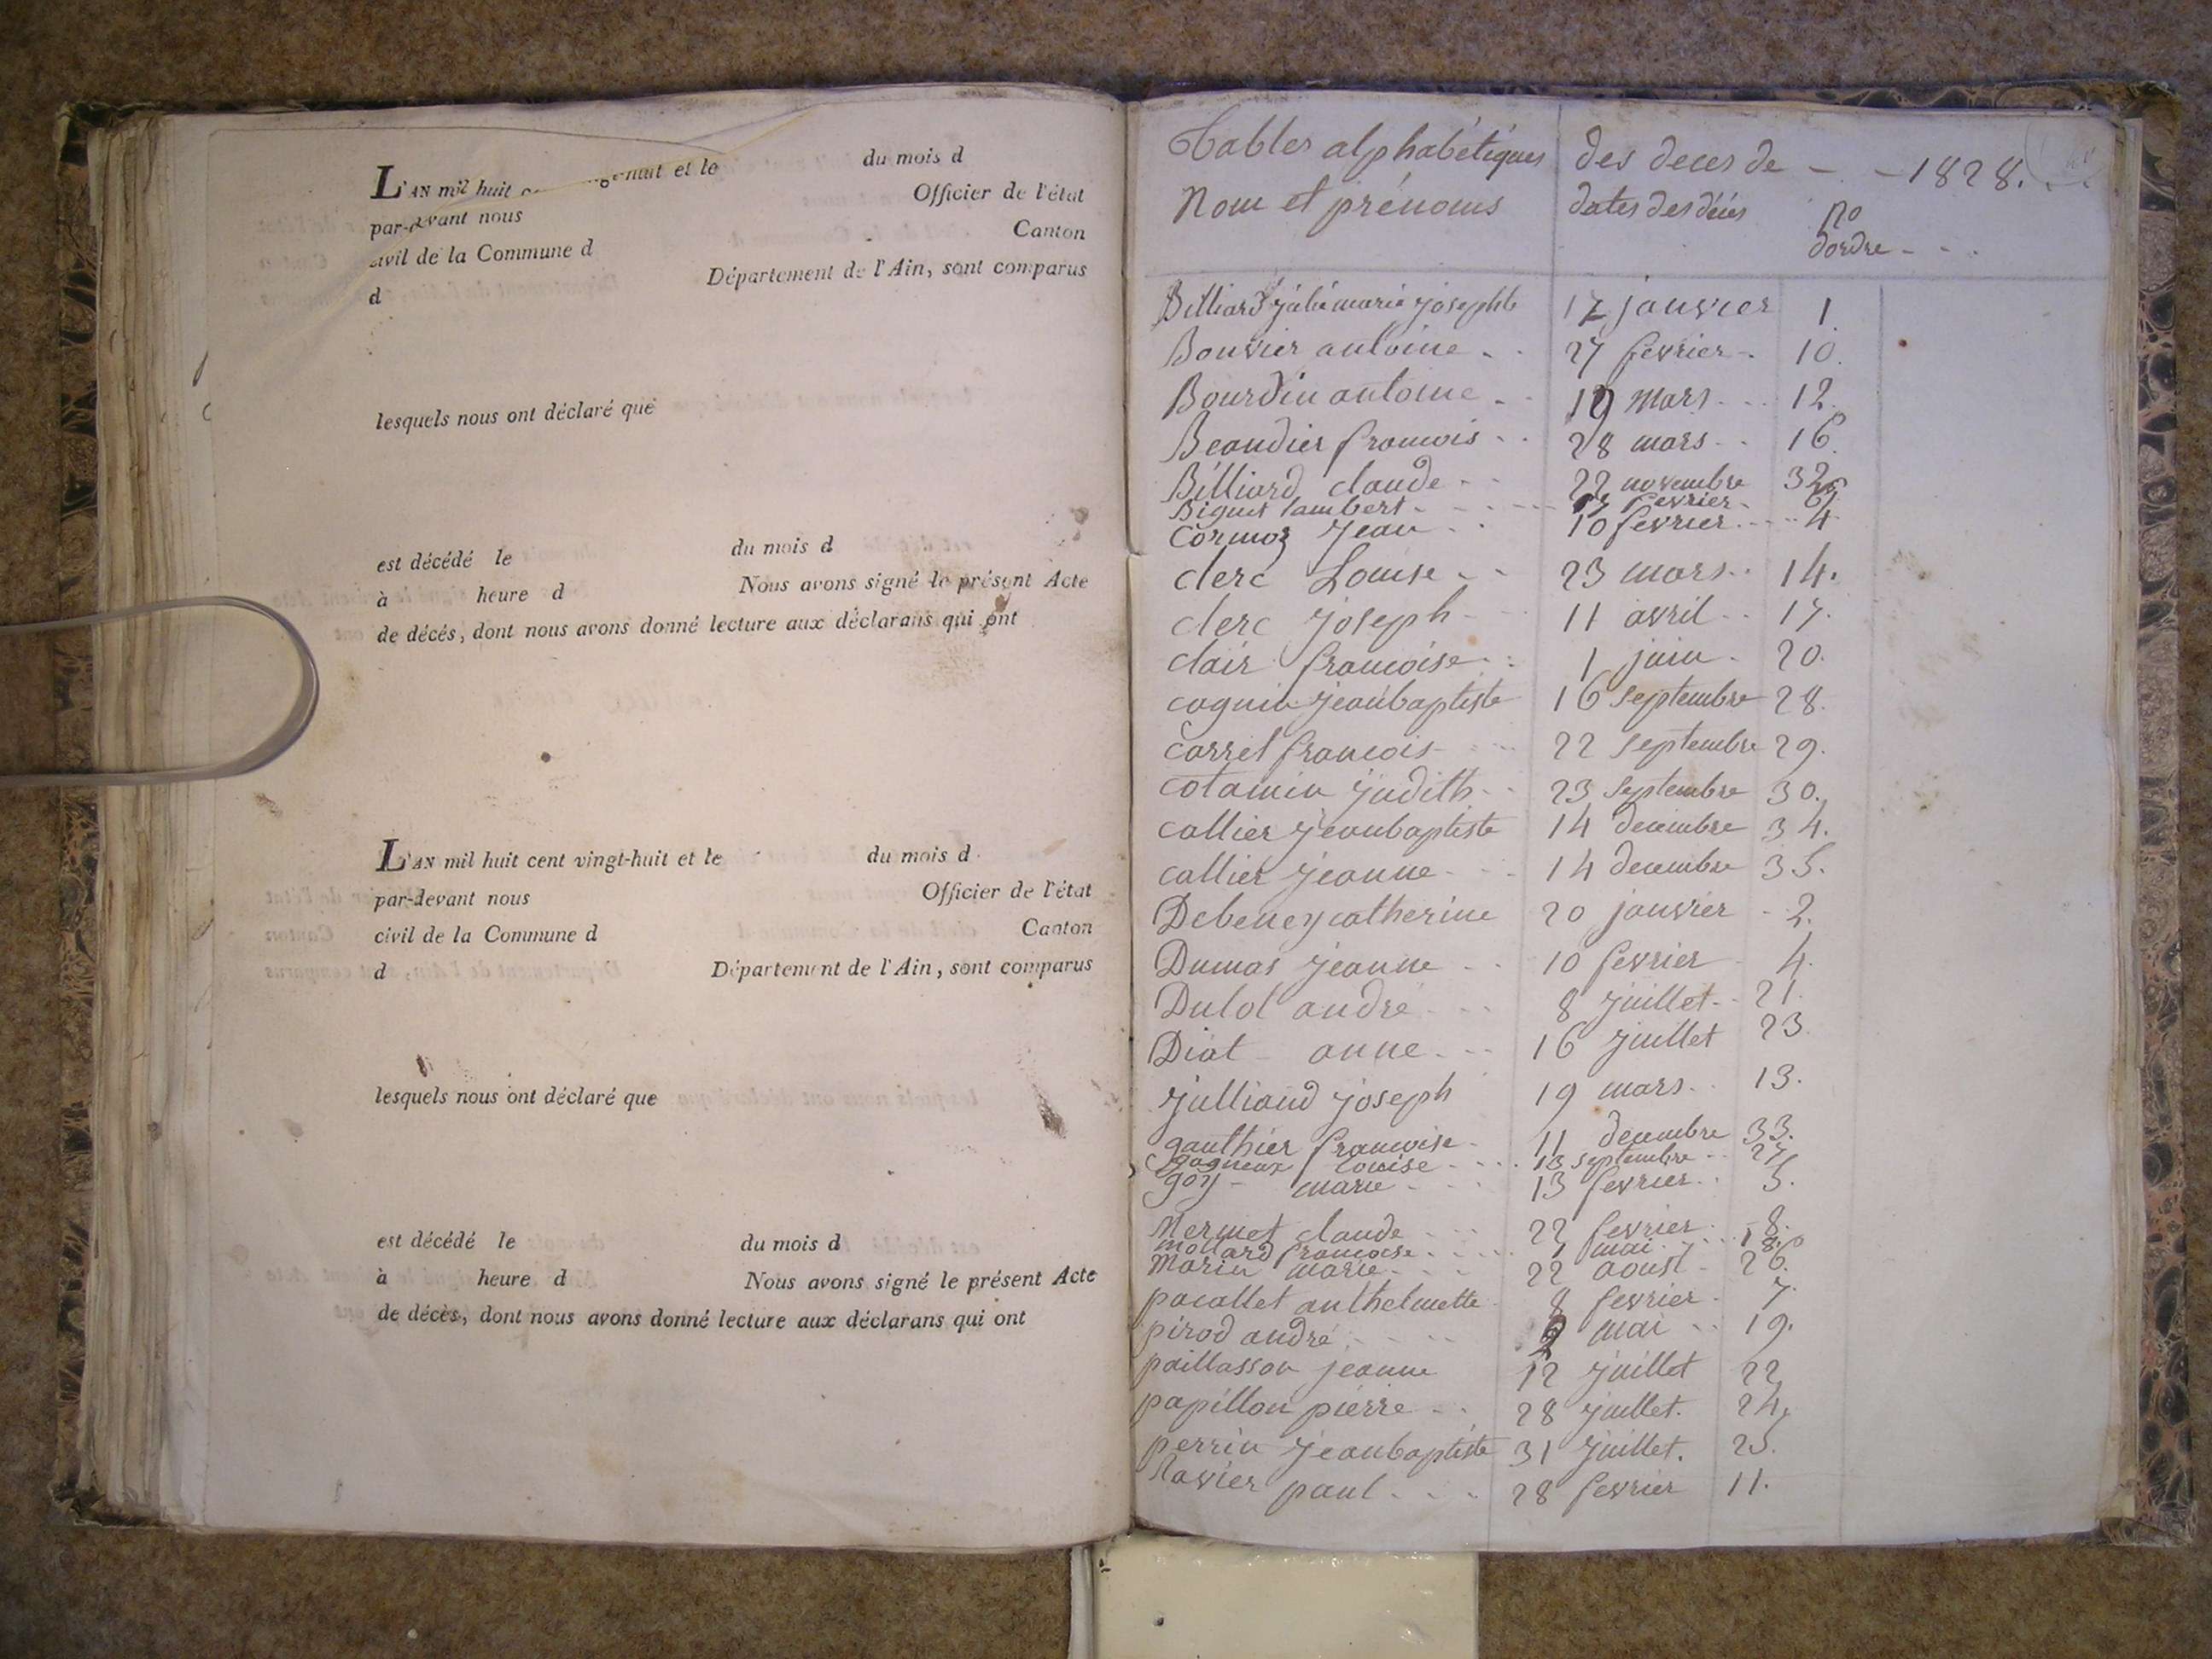 L'AN mil huit et le du mois d
par-devant nous Officier de l'état
civil de la Commune d Canton
d Département de l'Ain, sont comparus
lesquels nous ont déclaré que
est décédé le du mois d
à heure d Nous avons signé le présent Acte
de décés, dont nous avons donné lecture aux déclarans qui ont
L'AN mil huit cent vingt-huit et le du mois d
par-devant nous Officier de l'état
civil de la Commune d Canton
d Département de l'Ain, sont comparus
lesquels nous ont déclaré que
est décédé le du mois d
à heure d Nous avons signé le présent Acte
de décès, dont nous avons donné lecture aux déclarans qui ont
Tables alphabétiques des deces de - - 1828.
Nom et prénoms dates des décés no
dordre - - .
Billiard marie josephte janvier 1.
Bouvier antoine - . 27 fevrier - 10.
Bourdin antoine - . mars - - . 12.
Beaudier francois - . 28 mars - . 16.
Billiard claude - - 22 novembre 32.
lambert - fevrier -
Cormoz jean - . 10 fevrier - - - 4.
clerc Louise - - 23 mars - . 14.
clerc joseph - 11 avril - . 17.
clair francoise - . 1 juin - 20.
coguin jeanbaptiste 16 septembre 28.
carrel francois - 22 septembre 29.
cotamin judith - . 23 septembre 30.
callier jeanbaptiste 14 decembre 34.
callier jeanne - - 14 decembre 35.
Debeney catherine 20 janvier - 2.
Dumas jeanne - . 10 fevrier - 4.
Dulol andré - - . 8 juillet - . 21.
Diat - anne - - . 16 juillet 23.
julliand joseph 19 mars - . 13.
gauthier francoise - 11 decembre 33.
gagneux louise - - - . 13 septembre - . 27.
goy - marie - - . 13 fevrier - . 5.
Mermet claude - . 22 fevrier - 8.
mollard francoise - - - 1 mai - - - 18.
Morin marie - - - 22 aoust - 26.
pacallet anthelmette - 8 fevrier - 7.
pirod andré - - - mai - . 19.
paillasson jeanne 12 juillet 22.
papillon pierre - . 28 juillet. 24.
perrin jeanbaptiste 31 juillet. 25.
Ravier paul - - - 28 fevrier 11.